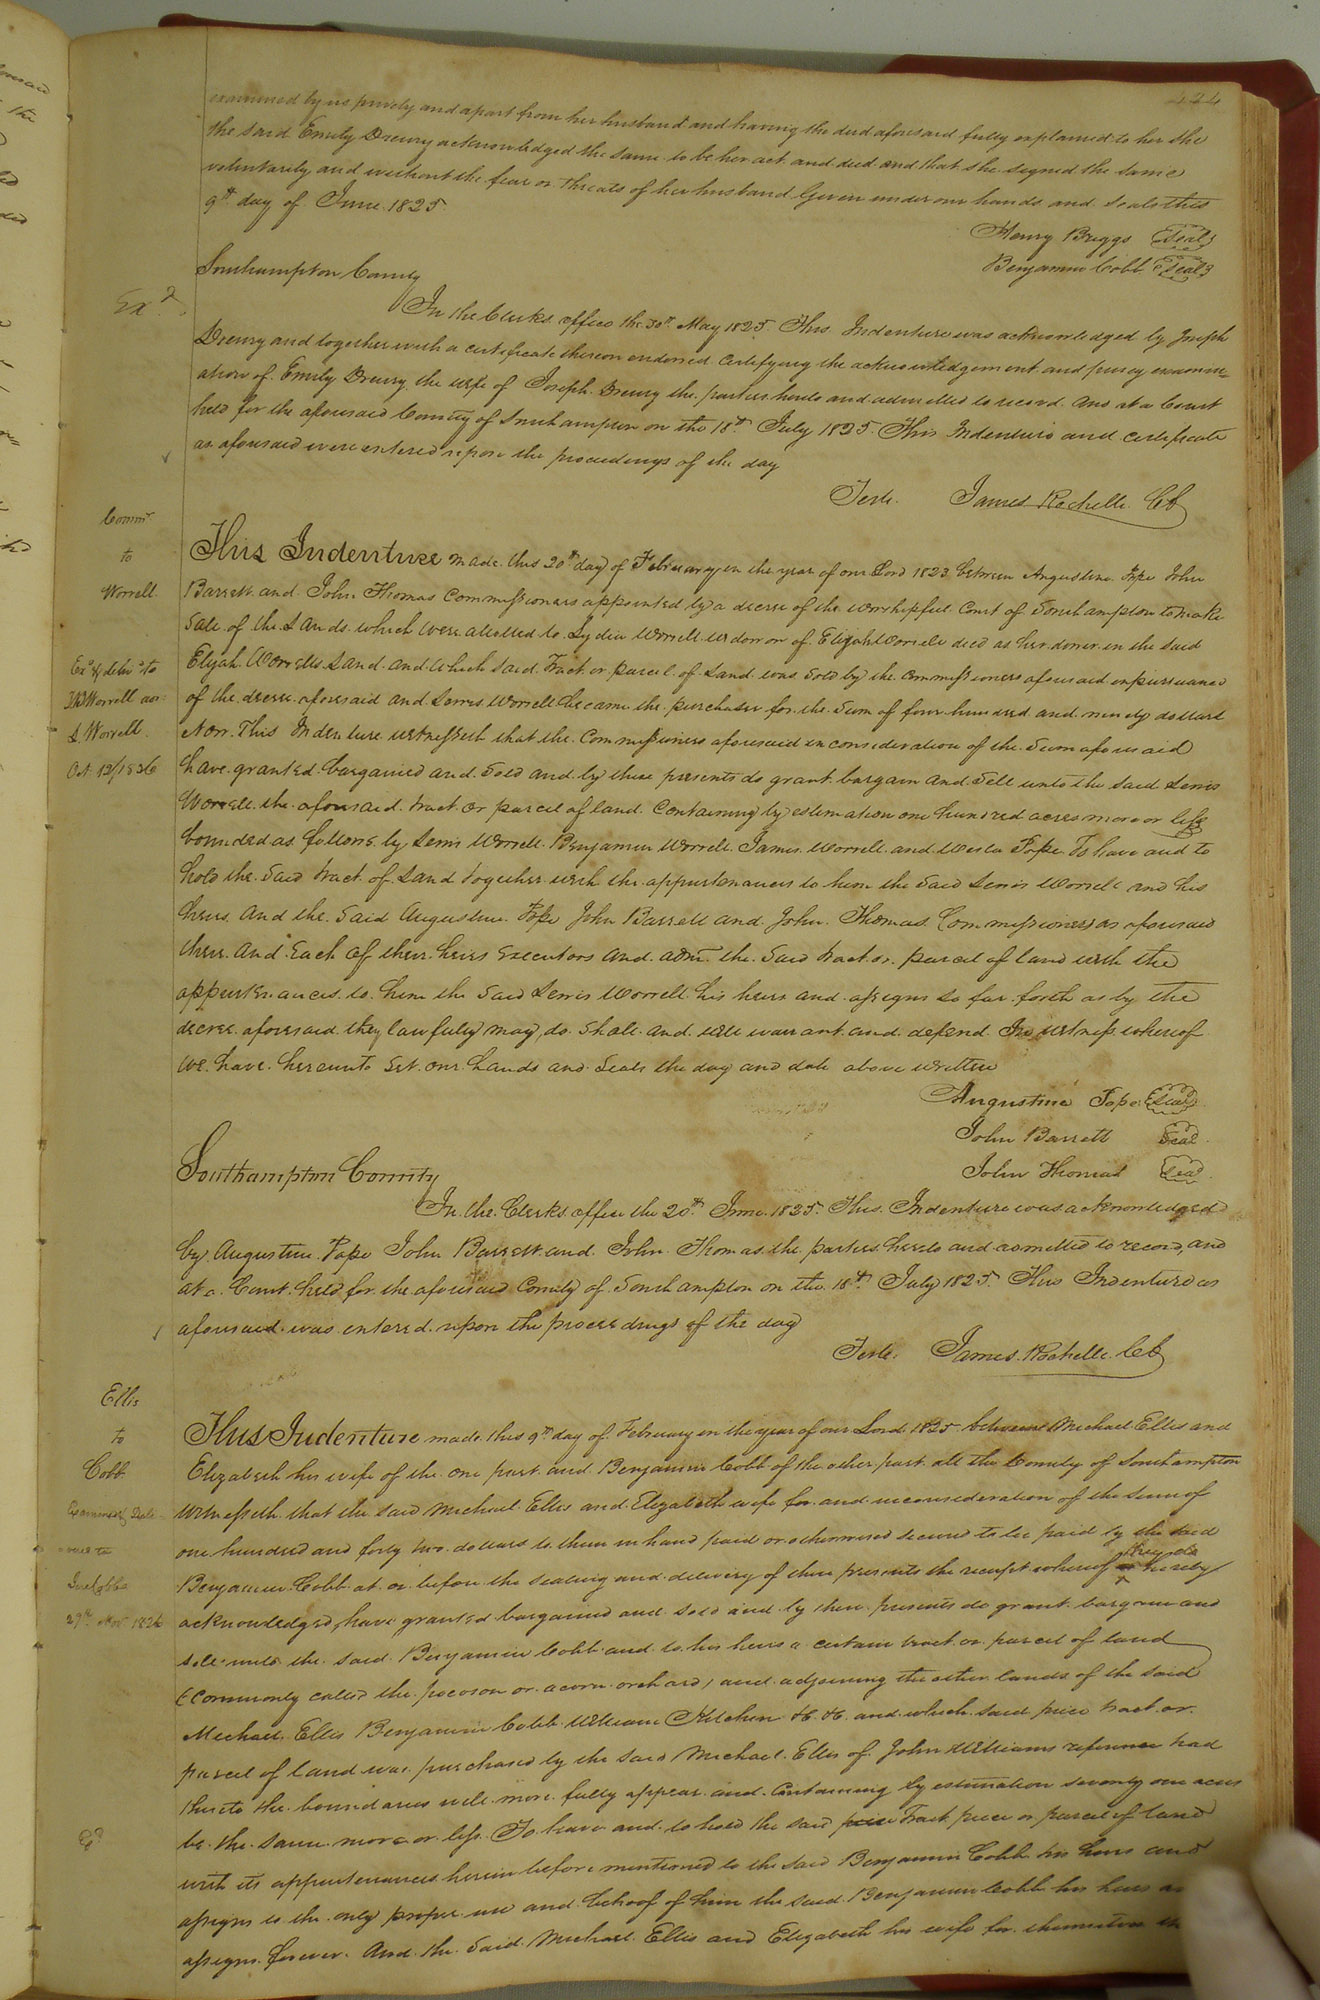 424
examined by us privily and apart from her husband and having the deed aforesaid fully explained to her she
the said Emily Drewry acknowledged the same to be her act and deed and that she signed the same
voluntarily and without the fear or threats of her husband Given under our hands and seals this
9th day of June 1825
Henry Briggs Seal
Benjamin Cobb Seal
Southampton County
Exd
In the Clerks office the 30th May 1825 This Indenture was acknowledged by Joseph
Drewry and together with a certificate thereon endorsed certifying the acknowledgement and privy examin=
ation of Emily Drewry the wife of Joseph Drewry the parties hereto and admitted to record. And at a Court
held for the aforesaid County of Southampton on the 18th July 1825 This Indenture and certificate
as aforesaid were entered upon the proceedings of the day
Teste. James Rochelle CC
Commrs
to
Worrell
Exd & delivd to
Worrell
L. Worrell
Oct 12/1836
This Indenture made this 20th day of February in the year of our Lord 1823 between Augustine Pope John
Barrett and John Thomas Commissioners appointed by a decree of the worshipful Court of Southampton to make
Sale of the Lands which were allotted to Lydia Worrell widow of Elijah Worrell decd as her dower in the said
Elijah Worrells Land and which said Tract or parcel of Land was sold by the commissioners aforesaid in pursuance
of the decree aforesaid and Lewis Worrell became the purchaser for the Sum of four hundred and ninety dollars
Now This Indenture witnesseth that the Commissioners aforesaid in consideration of the Sum aforesaid
have granted bargained and Sold and by these presents do grant bargain and Sell unto the said Lewis
Worrell the aforesaid tract or parcel of land Containing by estimation one hundred acres more or less
bounded as follows by Lewis Worrell Benjamin Worrell James Worrell and Pope To have and to
hold the Said tract of Land together with the appurtenances to him the Said Lewis Worrell and his
heirs And the Said Augustine Pope John Barrett and John Thomas Commissioners as aforesaid
them and Each of their heirs Executors and adm. the Said tract or parcel of land with the
appurtenances to him the Said Lewis Worrell his heirs and assigns so far forth as by the
decree aforesaid they lawfully may, do Shall and will warrant and defend In witness whereof
We have hereunto Set our hands and Seals the day and date above written
Augustine Pope Seal
John Barrett Seal
John Thomas Seal
Southampton County
In the Clerks office the 20th June 1825. This Indenture was acknowledged
by Augustine Pope John Barrett and John Thomas the parties hereto and admitted to record, and
at a Court held for the aforesaid County of Southampton on the 18th July 1825 This Indenture as
aforesaid was entered upon the proceedings of the day
Teste. James Rochelle CC
Ellis
to
Cobb
Examined &
29th Nov 1826
Exd
This Indenture made this 9th day of February in the year of our Lord 1825 between Michael Ellis and
Elizabeth his wife of the one part and Benjamin Cobb of the other part all the County of Southampton
Witnesseth that the said Michael Ellis and Elizabeth wife for and in consideration of the sum of
one hundred and forty two dollars to them in hand paid or otherwise secured to be paid by the said
Benjamin Cobb at or before the sealing and delivery of these presents the receipt whereof they do hereby
acknowledged, have granted bargained and sold and by these presents do grant bargain and
sell unto the said Benjamin Cobb and to his heirs a certain tract or parcel of land
(commonly called the pocoson or acorn orchard) and adjoining the other lands of the said
Michael Ellis Benjamin Cobb William Kitchen &c &c and which said piece tract or
parcel of land was purchased by the said Michael Ellis of John Williams reference had
thereto the boundaries will more fully appear and containing by estimation seventy one acres
be the same more or less. To have and to hold the said piece Tract piece or parcel of land
with its appurtenances herein before mentioned to the said Benjamin Cobb his heirs and
assigns to the only proper use and behoof of him the said Benjamin Cobb his heirs
assigns forever. And the Said Michael Ellis and Elizabeth his wife for themselves